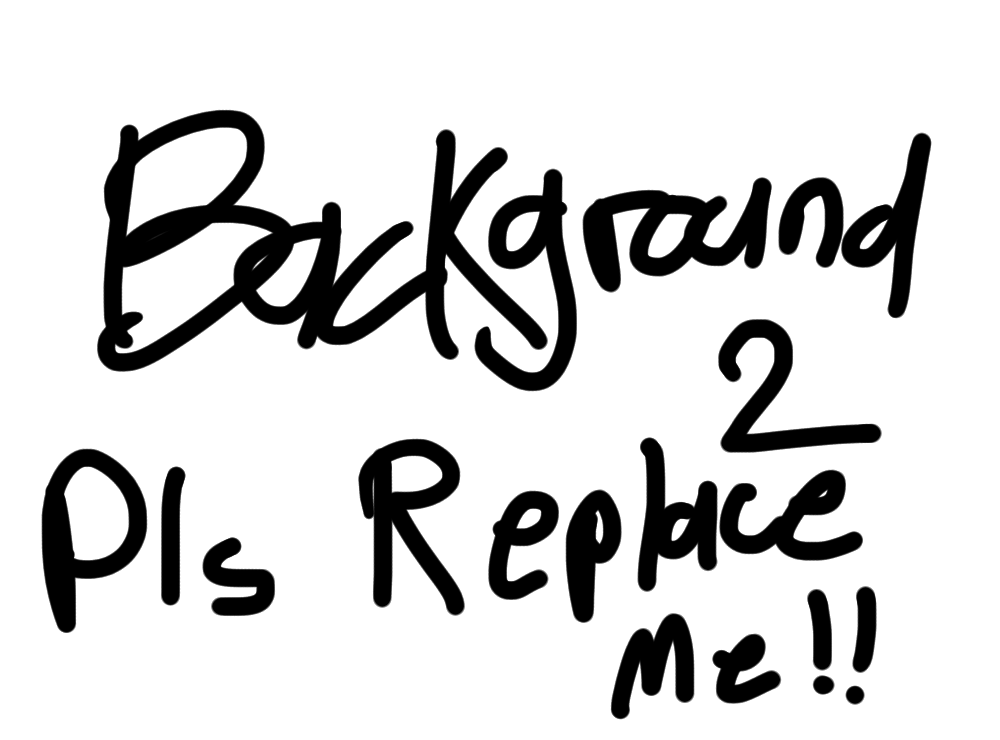 Background
2
Pls Replace
Me!!